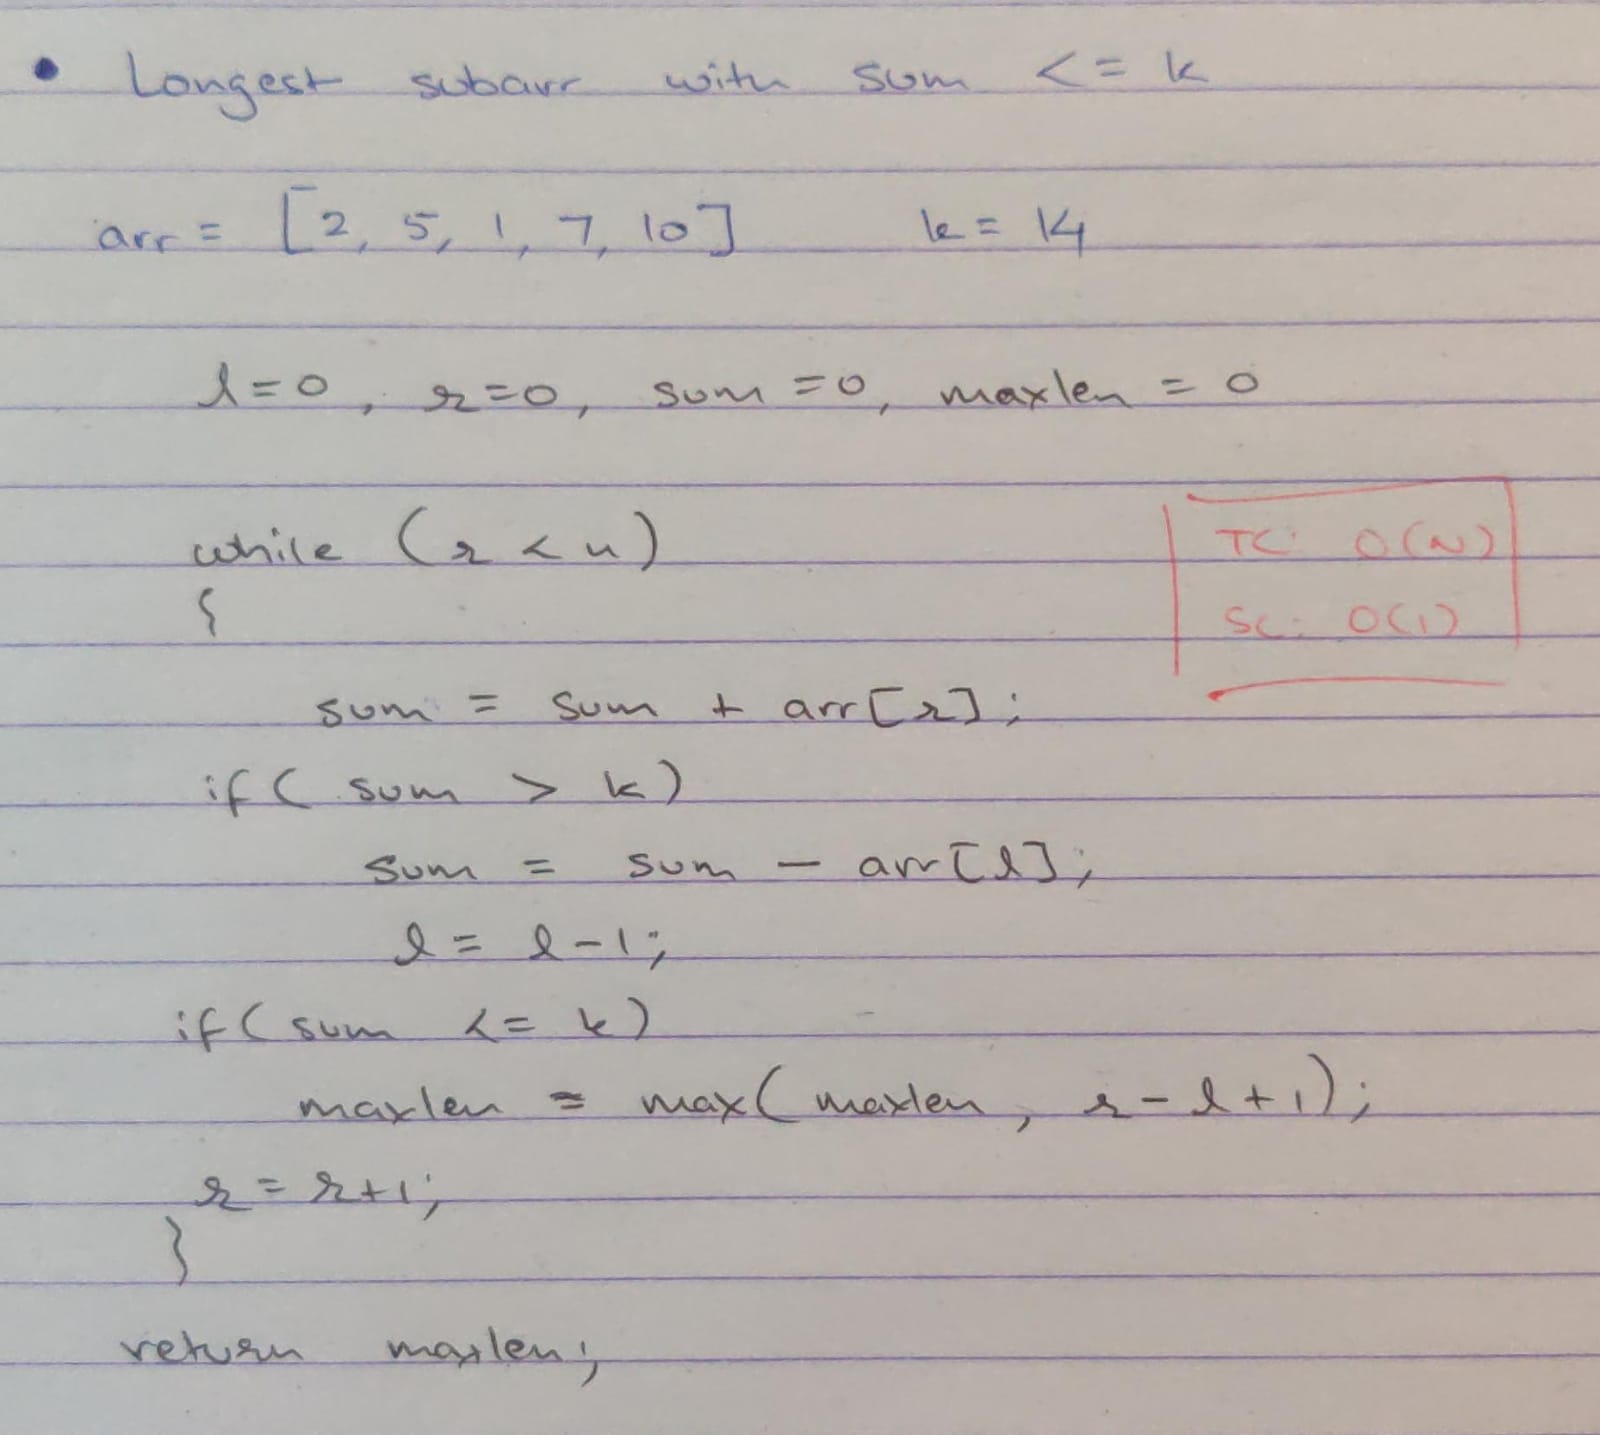 • Longest subarr with sum <= k
arr = [2, 5, 1, 7, 10] k = 14
l=0, r=0, sum=0, maxlen = 0
while (r < n)
{
TC: O(N)
SC: O(1)
sum = sum + arr[r];
if( sum > k)
sum = sum - arr[l];
l = l-1;
if(sum <= k)
maxlen = max(maxlen, r-l+1);
r = r+1;
}
return maxlen;